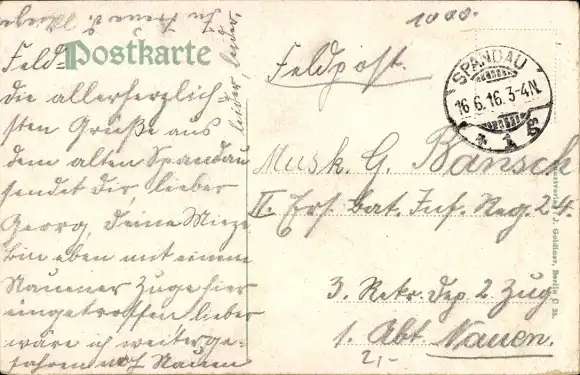 1000.
Postkarte
Feld=
Feldpost.
SPANDAU
16.6.16.3-4N.
* 1 g
die allerherzlich=
sten Grüße aus
dem alten Spandau
sendet Dir, lieber
Georg, deine Mieze
bin eben mit einem
Nauener Zuge hier
eingetroffen lieber
wäre ich weiterge=
fahren nach Nauen
leider, leider.
In Treue d. Mieze
Musk. G. Bansch
II. Ers. Bat. Inf. Reg. 24.
3. Rekr. Dep. 2 Zug
1. Abt. Nauen.
2,-
J. Goldiner, Berlin C 25.